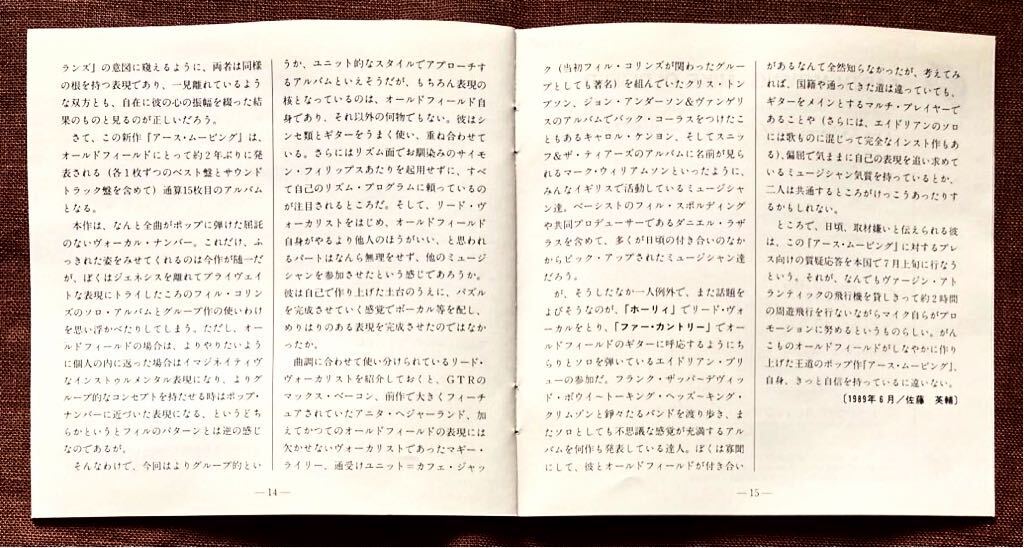 ランズ』の意図に窺えるように、両者は同様
の根を持つ表現であり、一見離れているよう
な双方とも、自在に彼の心の振幅を綴った結
果のものと見るのが正しいだろう。
さて、この新作『アース・ムービング』は、
オールドフィールドにとって約２年ぶりに発
表される（各１枚ずつのベスト盤とサウンド
トラック盤を含めて）通算15枚目のアルバム
となる。
本作は、なんと全曲がポップに弾けた屈託
のないヴォーカル・ナンバー。これだけ、ふ
っきれた姿をみせてくれるのは今作が随一だ
が、ぼくはジェネシスを離れてプライヴェイ
トな表現にトライしたころのフィル・コリン
ズのソロ・アルバムとグループ作の使いわけ
を思い浮かべたりしてしまう。ただし、オー
ルドフィールドの場合は、よりやりたいよう
に個人の内に返った場合はイマジネイティヴ
なインストゥルメンタル表現になり、よりグ
ループ的なコンセプトを持たせる時はポップ・
ナンバーに近づいた表現になる、というどち
らかというとフィルのパターンとは逆の感じ
なのであるが。
そんなわけで、今回はよりグループ的とい
うか、ユニット的なスタイルでアプローチす
るアルバムといえそうだが、もちろん表現の
核となっているのは、オールドフィールド自
身であり、それ以外の何物でもない。彼はシ
ンセ類とギターをうまく使い、重ね合わせて
いる。さらにはリズム面でお馴染みのサイモ
ン・フィリップスあたりを起用せずに、すべ
て自己のリズム・プログラムに頼っているの
が注目されるところだ。そして、リード・ヴ
ォーカリストをはじめ、オールドフィールド
自身がやるより他人のほうがいい、と思われ
るパートはなんら無理をせず、他のミュージ
シャンを参加させたという感じであろうか。
彼は自己で作り上げた土台のうえに、パズル
を完成させていく感覚でボーカル等を配し、
めりはりのある表現を完成させたのではなか
ったか。
曲調に合わせて使い分けられているリード・
ヴォーカリストを紹介しておくと、ＧＴＲの
マックス・ベーコン、前作で大きくフィーチ
ュアされていたアニタ・ヘジャーランド、加
えてかつてのオールドフィールドの表現には
欠かせないヴォーカリストであったマギー・
ライリー、通受けユニット＝カフェ・ジャッ
―14―
ク（当初フィル・コリンズが関わったグルー
プとしても著名）を組んでいたクリス・トン
プソン、ジョン・アンダーソン＆ヴァンゲリ
スのアルバムでバック・コーラスをつけたこ
ともあるキャロル・ケンヨン、そしてスニッ
フ＆ザ・ティアーズのアルバムに名前が見ら
れるマーク・ウィリアムソンといったように、
みんなイギリスで活動しているミュージシャ
ン達。ベーシストのフィル・スポルディング
や共同プロデューサーであるダニエル・ラザ
ラスを含めて、多くが日頃の付き合いのなか
からピック・アップされたミュージシャン達
だろう。
が、そうしたなか一人例外で、また話題を
よびそうなのが、「ホーリィ」でリード・ヴォ
ーカルをとり、「ファー・カントリー」でオー
ルドフィールドのギターに呼応するようにち
らりとソロを弾いているエイドリアン・ブリ
ューの参加だ。フランク・ザッパ〜デヴィッ
ド・ボウイ〜トーキング・ヘッズ〜キング・
クリムゾンと錚々たるバンドを渡り歩き、ま
たソロとしても不思議な感覚が充満するアル
バムを何作も発表している達人。ぼくは寡聞
にして、彼とオールドフィールドが付き合い
があるなんて全然知らなかったが、考えてみ
れば、国籍や通ってきた道は違っていても、
ギターをメインとするマルチ・プレイヤーで
あることや（さらには、エイドリアンのソロ
には歌ものに混じって完全なインスト作もあ
る）、偏屈で気ままに自己の表現を追い求めて
いるミュージシャン気質を持っているとか、
二人は共通するところがけっこうあったりす
るかもしれない。
ところで、日頃、取材嫌いと伝えられる彼
は、この『アース・ムービング』に対するプレ
ス向けの質疑応答を本国で７月上旬に行なう
という。それが、なんでもヴァージン・アト
ランティックの飛行機を貸しきって約２時間
の周遊飛行を行ないながらマイク自らがプロ
モーションに努めるというものらしい。がん
こものオールドフィールドがしなやかに作り
上げた王道のポップ作『アース・ムービング』、
自身、きっと自信を持っているに違いない。
〔1989年６月／佐藤　英輔〕
―15―